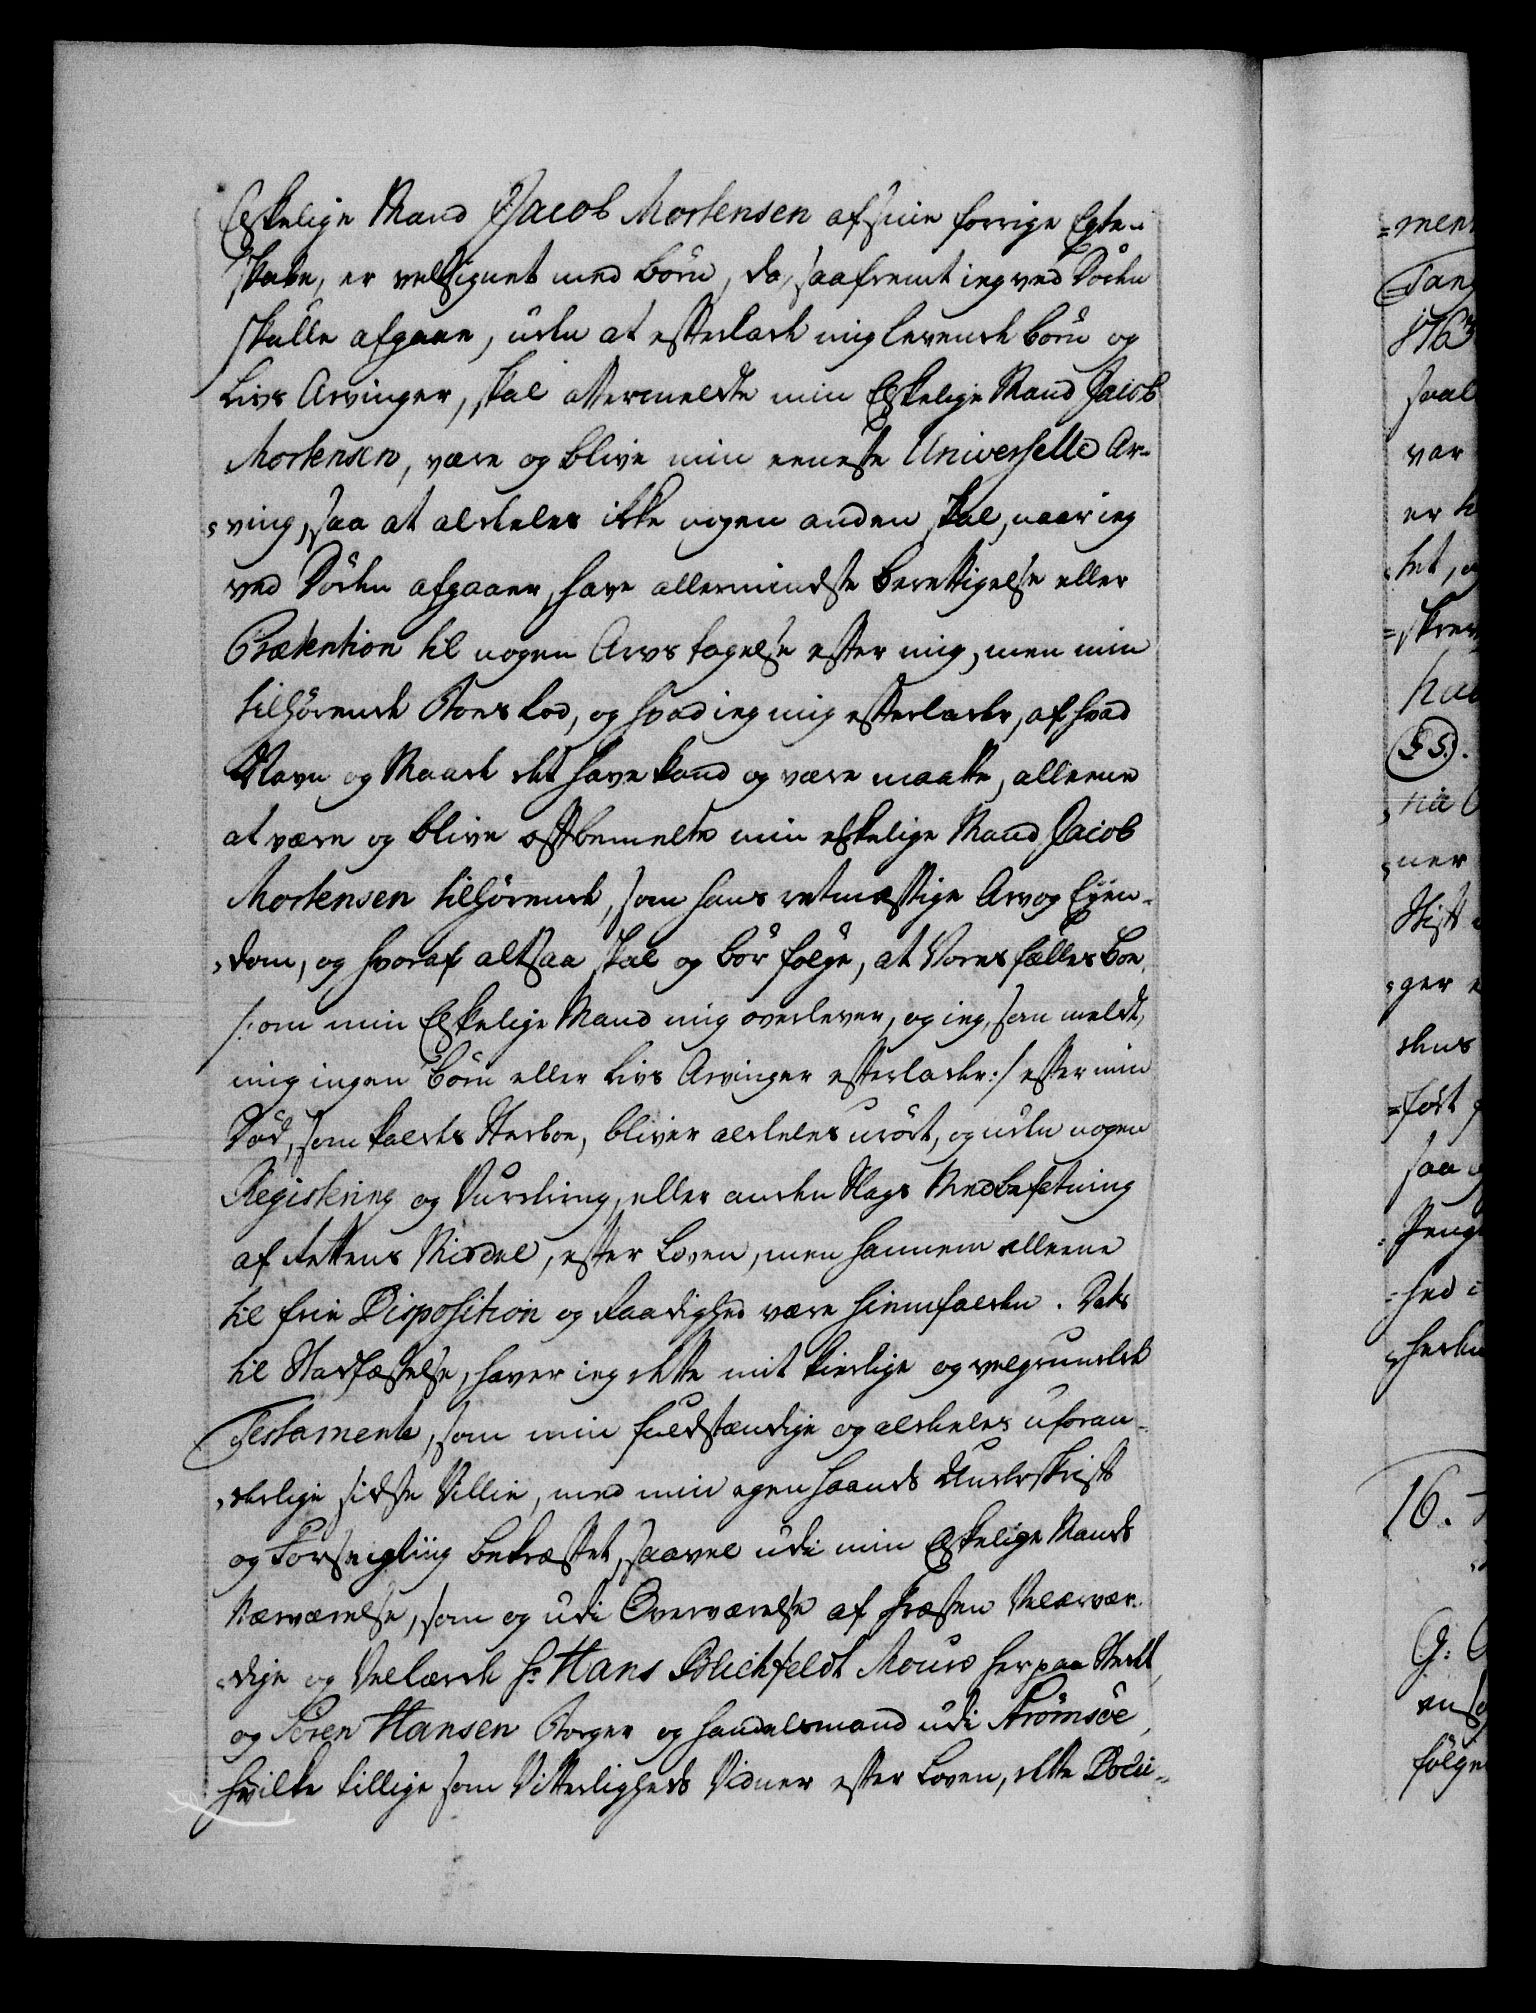 Elskelige Mand Jacob Mortensen af sine forrige Egte-
skabe, er velsignet med Børn, da, saafremt ieg ved Døden
skulle afgaae, uden at efterlade mig levende Børn og
Livs Arvinger, skal ottermeldte min Elskelige Mand Jacob
Mortensen, være og blive min eeneste Universelle Ar-
ving, saa at aldeles ikke nogen anden skal, naar ieg
ved Døden afgaaer, have allermindste Berettigelse eller
Prætention til nogen Arvs tagelse efter mig, men min
tilhørende Boes Lod, og hvad ieg mig efterlader, af hvad
Navn og Maade det have kand og være maatte, alleene
at være og blive oftbemelte min elskelige Mand Jacob
Mortensen tilhørende, som hans retmæssige Arv og Eien-
dom, og hvoraf altsaa skal og bør følge, at Vores fælles Boe
/: om min Elskelige Mand mig overlever, og ieg, som meldt,
mig ingen Børn eller Livs Arvinger efterlader :/ efter min
Død, som kaldes Sterboe, bliver aldeles urørt, og uden nogen
Registering og Vurdering, eller anden Slags Medbefatning
af Rettens Middel, efter Loven, men hannem alleene
til frie Disposition og Raadighed være hiemfalden. Dets
til Stadfæstelse, haver ieg dette mit kierlige og velgrundede
Testamente, som min fuldstændige og aldeles uforan-
derlige sidste Villie, med min egen Haands Underskrift
og Forseigling bekræftet, saavel udi min Elskelige Mands
Nærværelse, som og udi Overværelse af Præsten Velærvær-
dige og Vellærde Hr Hans Blichfeldt Mouro her paa Stedet,
og Søren Hansen Borger og Handelsmand udi Strømsøe,
hvilke tillige som Vitterligheds Vidner efter Loven, dette Docu-